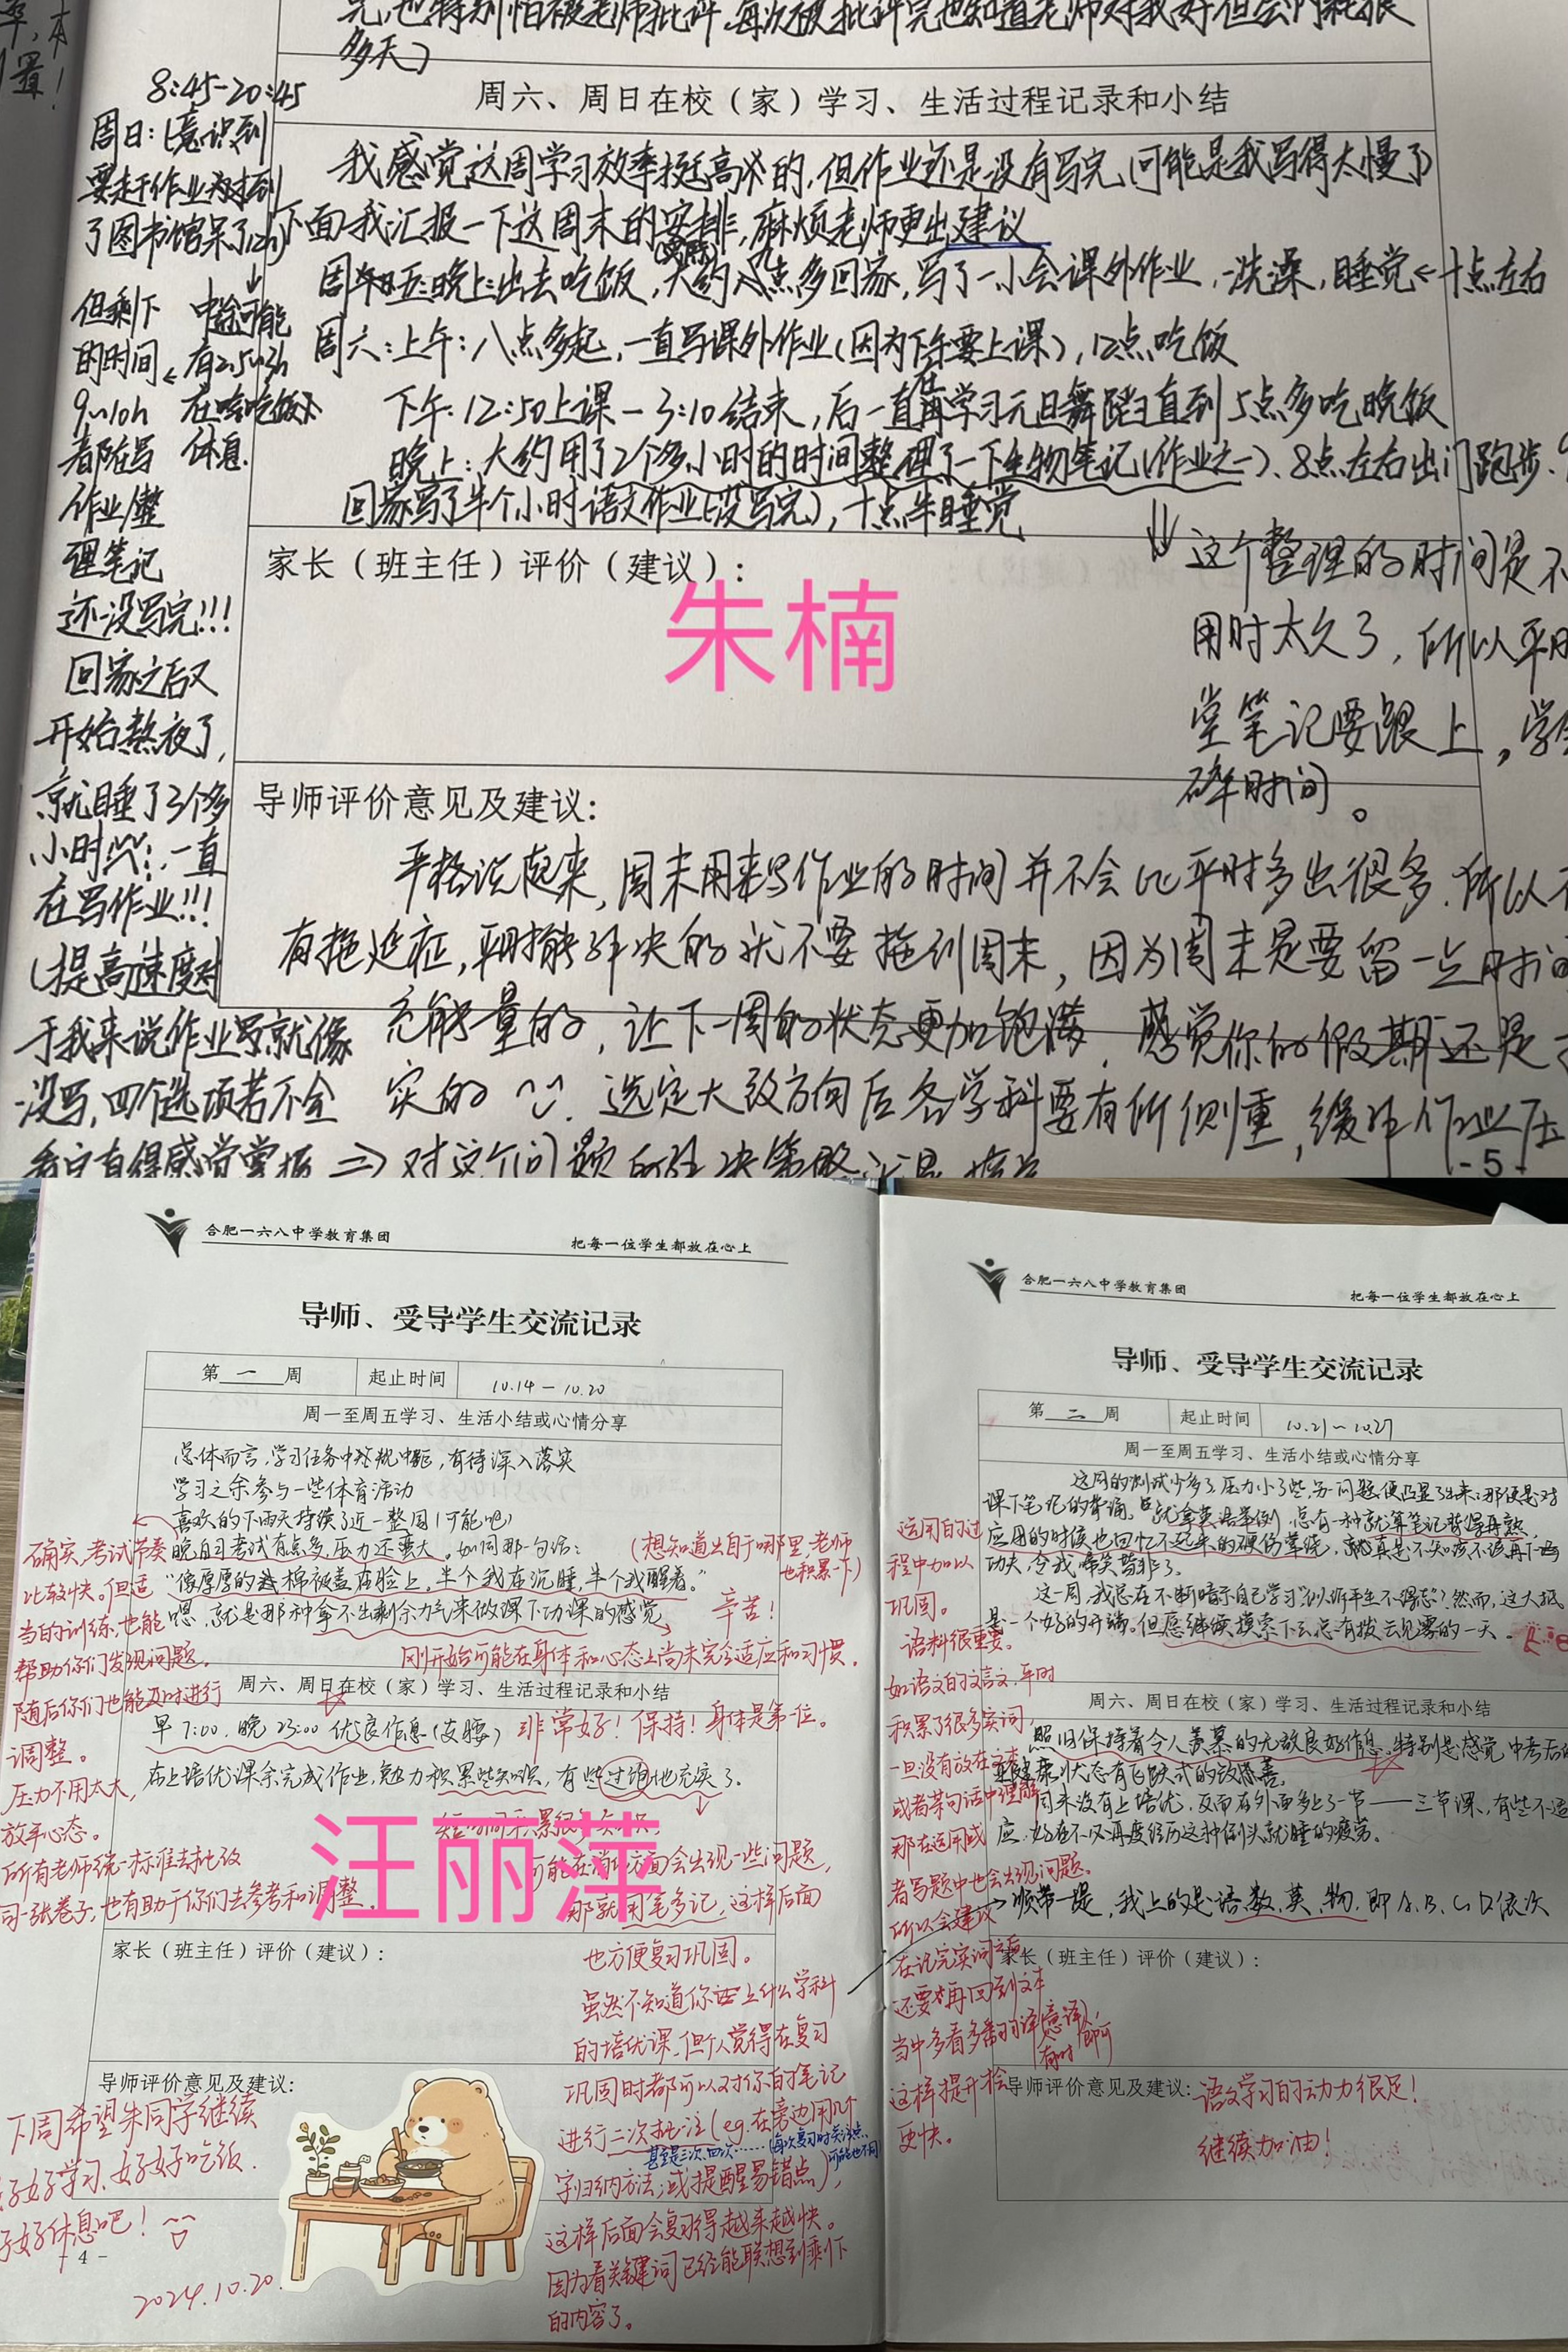 完,也特别怕被老师批评,每次被批评完也知道老师对我好但会内耗很
多天)
8:45-20:45
周六、周日在校(家)学习、生活过程记录和小结
我感觉这周学习效率挺高的,但作业还是没有写完,可能是我写得太慢了
下面我汇报一下这周末的安排,麻烦老师更出建议
晚上:出去吃饭,大约八点多回家,写了一小会课外作业,洗澡,睡觉←十点左右
周六:上午:八点多起,一直写课外作业(因为下午要上课),12点吃饭
下午:12:50上课-3:10结束,后一直在学习元旦舞蹈直到5点多吃晚饭
晚上:大约用了2个多小时的时间整理了一下生物笔记(作业之一)、8点左右出门跑步,
回家写了半个小时语文作业(没写完),十点半睡觉
周日:(意识到
要赶作业
了图书馆呆了12h)
但剩下
的时间
9~10h
都在写
作业/整
理笔记
还没写完!!!
回家之后又
开始熬夜了,
就睡了3个多
小时,一直
在写作业!!!
(提高速度对
于我来说作业写就像
没写,四个选项若不会
中途可能
有2.5~3h
在吃饭
休息.
家长(班主任)评价(建议):
朱楠
这个整理的时间是不
用时太久了,所以平时
堂笔记要跟上,学会
碎时间。
导师评价意见及建议:
严格说起来,周末用来写作业的时间并不会比平时多出很多.所以不
有拖延症,平时能解决的就不要拖到周末,因为周末是要留一点时间
充能量的,让下一周的状态更加饱满,感觉你的假期还是
实的 选定大致方向后各学科要有所侧重,缓解作业压
- 5 -
合肥一六八中学教育集团 把每一位学生都放在心上
导师、受导学生交流记录
第 一 周 起止时间 10.14-10.20
周一至周五学习、生活小结或心情分享
总体而言,学习任务中规中矩,有待深入落实
学习之余参与一些体育活动
喜欢的下雨天持续了近一整周(可能吧)
晚自习考试有点多,压力还蛮大。如同那一句话:
“像厚厚的棉被盖在脸上,半个我在沉睡,半个我醒着。”
嗯,就是那种拿不出剩余力气来做课下功课的感觉
(想知道出自于哪里,老师
也积累一下)
辛苦!
刚开始可能在身体和心态上尚未完全适应和习惯。
确实,考试节奏
比较快。但适
当的训练,也能
帮助你们发现问题。
随后你们也能及时进行
调整。
压力不用太大,
放平心态。
所有老师统一标准去批改
同一张卷子,也有助于你们去参考和调整。
周六、周日在校(家)学习、生活过程记录和小结
早7:00,晚23:00 优良作息(叉腰)
非常好!保持!身体是第一位。
在上培优课余完成作业,勉力积累些知识,有些过饱地充实了.
汪丽萍
可能在消化方面会出现一些问题,
那就用笔多记,这样后面
也方便复习巩固。
虽然不知道你上什么学科
的培优课,但个人觉得在复习
巩固时都可以对你的笔记
进行二次批注(eg.在旁边用几个
甚至三次、四次……(每次复习时关注点
可能也不同
字归纳方法;或提醒易错点),
这样后面会复习得越来越快。
因为看关键词已经能联想到剩下
的内容了。
家长(班主任)评价(建议):
导师评价意见及建议:
下周希望朱同学继续
好好学习、好好吃饭.
好好休息吧!
- 4 -
2024.10.20.
合肥一六八中学教育集团 把每一位学生都放在心上
导师、受导学生交流记录
第 二 周 起止时间 10.21~10.27
周一至周五学习、生活小结或心情分享
这周的测试少多了,压力小了些,另一问题便凸显了出来:那便是对
课下笔记的背诵。就拿英语举例,总有一种就算笔记背得再熟,
应用的时候也回忆不起来的硬伤萦绕,真是不知该不该再下苦
功夫,令我啼笑皆非了。
这一周,我总在不断暗示自己学习“以听平生不得志”?然而,这大抵
是一个好的开端。但愿继续摸索下去总有拨云见雾的一天.
运用的过
程中加以
巩固。
语料很重要。
如语文的文言文,平时
积累了很多实词,
一旦没有放在文本
或者某句话中理解
那在运用或
者写题中也会出现问题。
所以会建议
在记完实词之后
还要再回到文本
当中多看多翻译(意译,
有时即可
这样提升会
更快。
周六、周日在校(家)学习、生活过程记录和小结
照旧保持着令人羡慕的无敌良好作息,特别是感觉中考后的
亚健康状态有飞跃式的改善。
周末没有上培优,反而在外面多上了一节——三节课,有些不适
应,好在不必再度经历这种倒头就睡的疲劳。
→顺带一提,我上的是语、数、英、物,即A、B、C、D依次
家长(班主任)评价(建议):
导师评价意见及建议:
语文学习的动力很足!
继续加油!